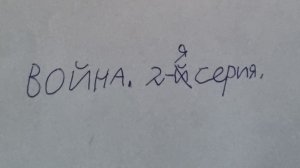 ВОЙНА. 2-я серия.